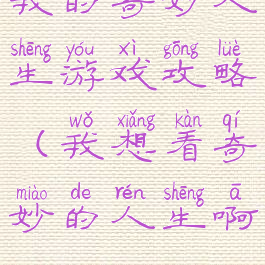 我的奇妙人
shēng yóu xì gōng lüè
生游戏攻略
wǒ xiǎng kàn qí
(我想看奇
miào de rén shēng ā
妙的人生啊